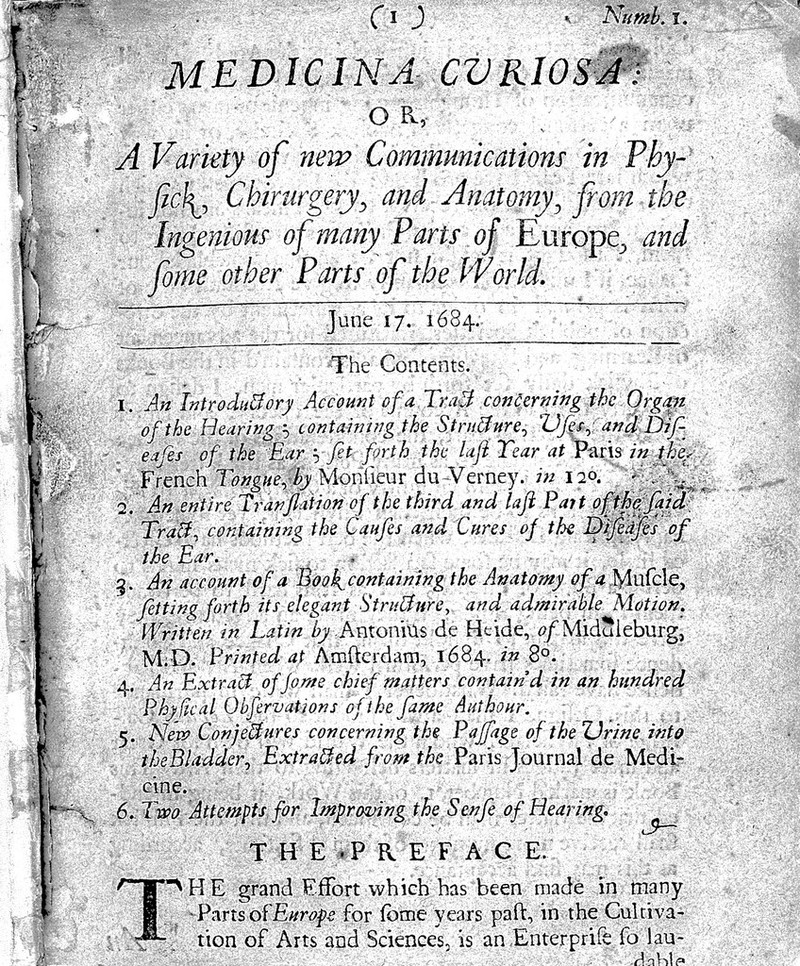 (1)
Numb. 1.
MEDICINA CURIOSA:
OR,
A Variety of new Communications in Phy-
ſick, Chirurgery, and Anatomy, from the
Ingenious of many Parts of Europe, and
ſome other Parts of the World.
June 17. 1684.
The Contents.
1. An Introductory Account of a Tract concerning the Organ
of the Hearing; containing the Structure, Uſes, and Diſ-
eaſes of the Ear; ſet forth the laſt Year at Paris in the
French Tongue, by Monſieur du Verney. in 12o.
2. An entire Tranſlation of the third and laſt Part of the ſaid
Tract, containing the Cauſes and Cures of the Diſeaſes of
the Ear.
3. An account of a Book containing the Anatomy of a Muſcle,
ſetting forth its elegant Structure, and admirable Motion.
Written in Latin by Antonius de Heide, of Middleburg,
M.D. Printed at Amſterdam, 1684. in 8o.
4. An Extract of ſome chief matters contain'd in an hundred
Phyſical Obſervations of the ſame Authour.
5. New Conjectures concerning the Paſſage of the Urine into
the Bladder, Extracted from the Paris Journal de Medi-
cine.
6. Two Attempts for Improving the Senſe of Hearing.
THE PREFACE.
THE grand Effort which has been made in many
Parts of Europe for ſome years paſt, in the Cultiva-
tion of Arts and Sciences, is an Enterpriſe ſo lau-
dable